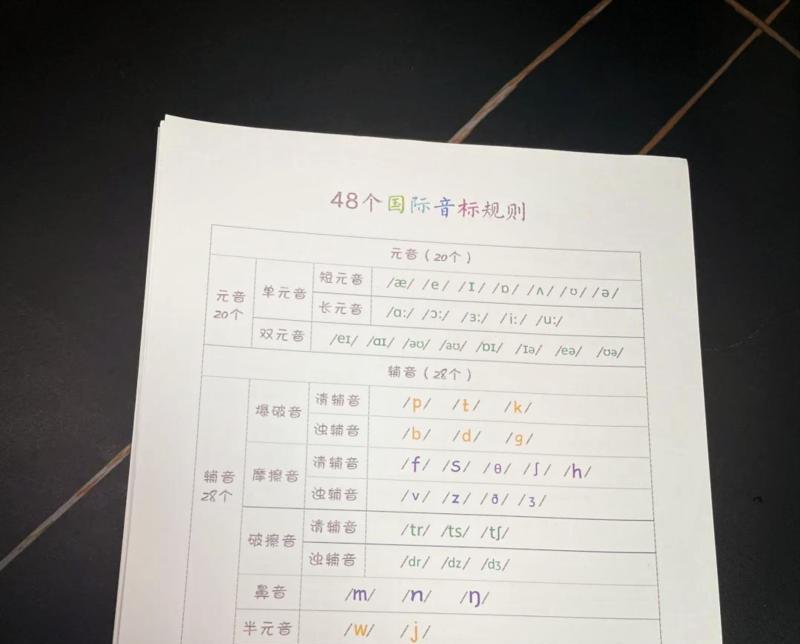 48个国际音标规则
元音(20个)
元音
20个
单元音
短元音
/æ/ /e/ /ɪ/ /ɒ/ /ʌ/ /ʊ/ /ə/
长元音
/ɑ:/ /ɔ:/ /ɜ:/ /i:/ /u:/
双元音
/eɪ/ /aɪ/ /əʊ/ /aʊ/ /ɒɪ/ /ɪə/ /eə/ /ʊə/
辅音(28个)
辅音
28个
爆破音
请辅音
/p/ /t/ /k/
浊辅音
/b/ /d/ /g/
摩擦音
请辅音
/f/ /s/ /θ/ /ʃ/ /h/
浊辅音
/v/ /z/ /ð/ /ʒ/
破擦音
请辅音
/tr/ /ts/ /tʃ/
浊辅音
/dr/ /dz/ /dʒ/
鼻音
/m/ /n/ /ŋ/
半元音
/w/ /j/